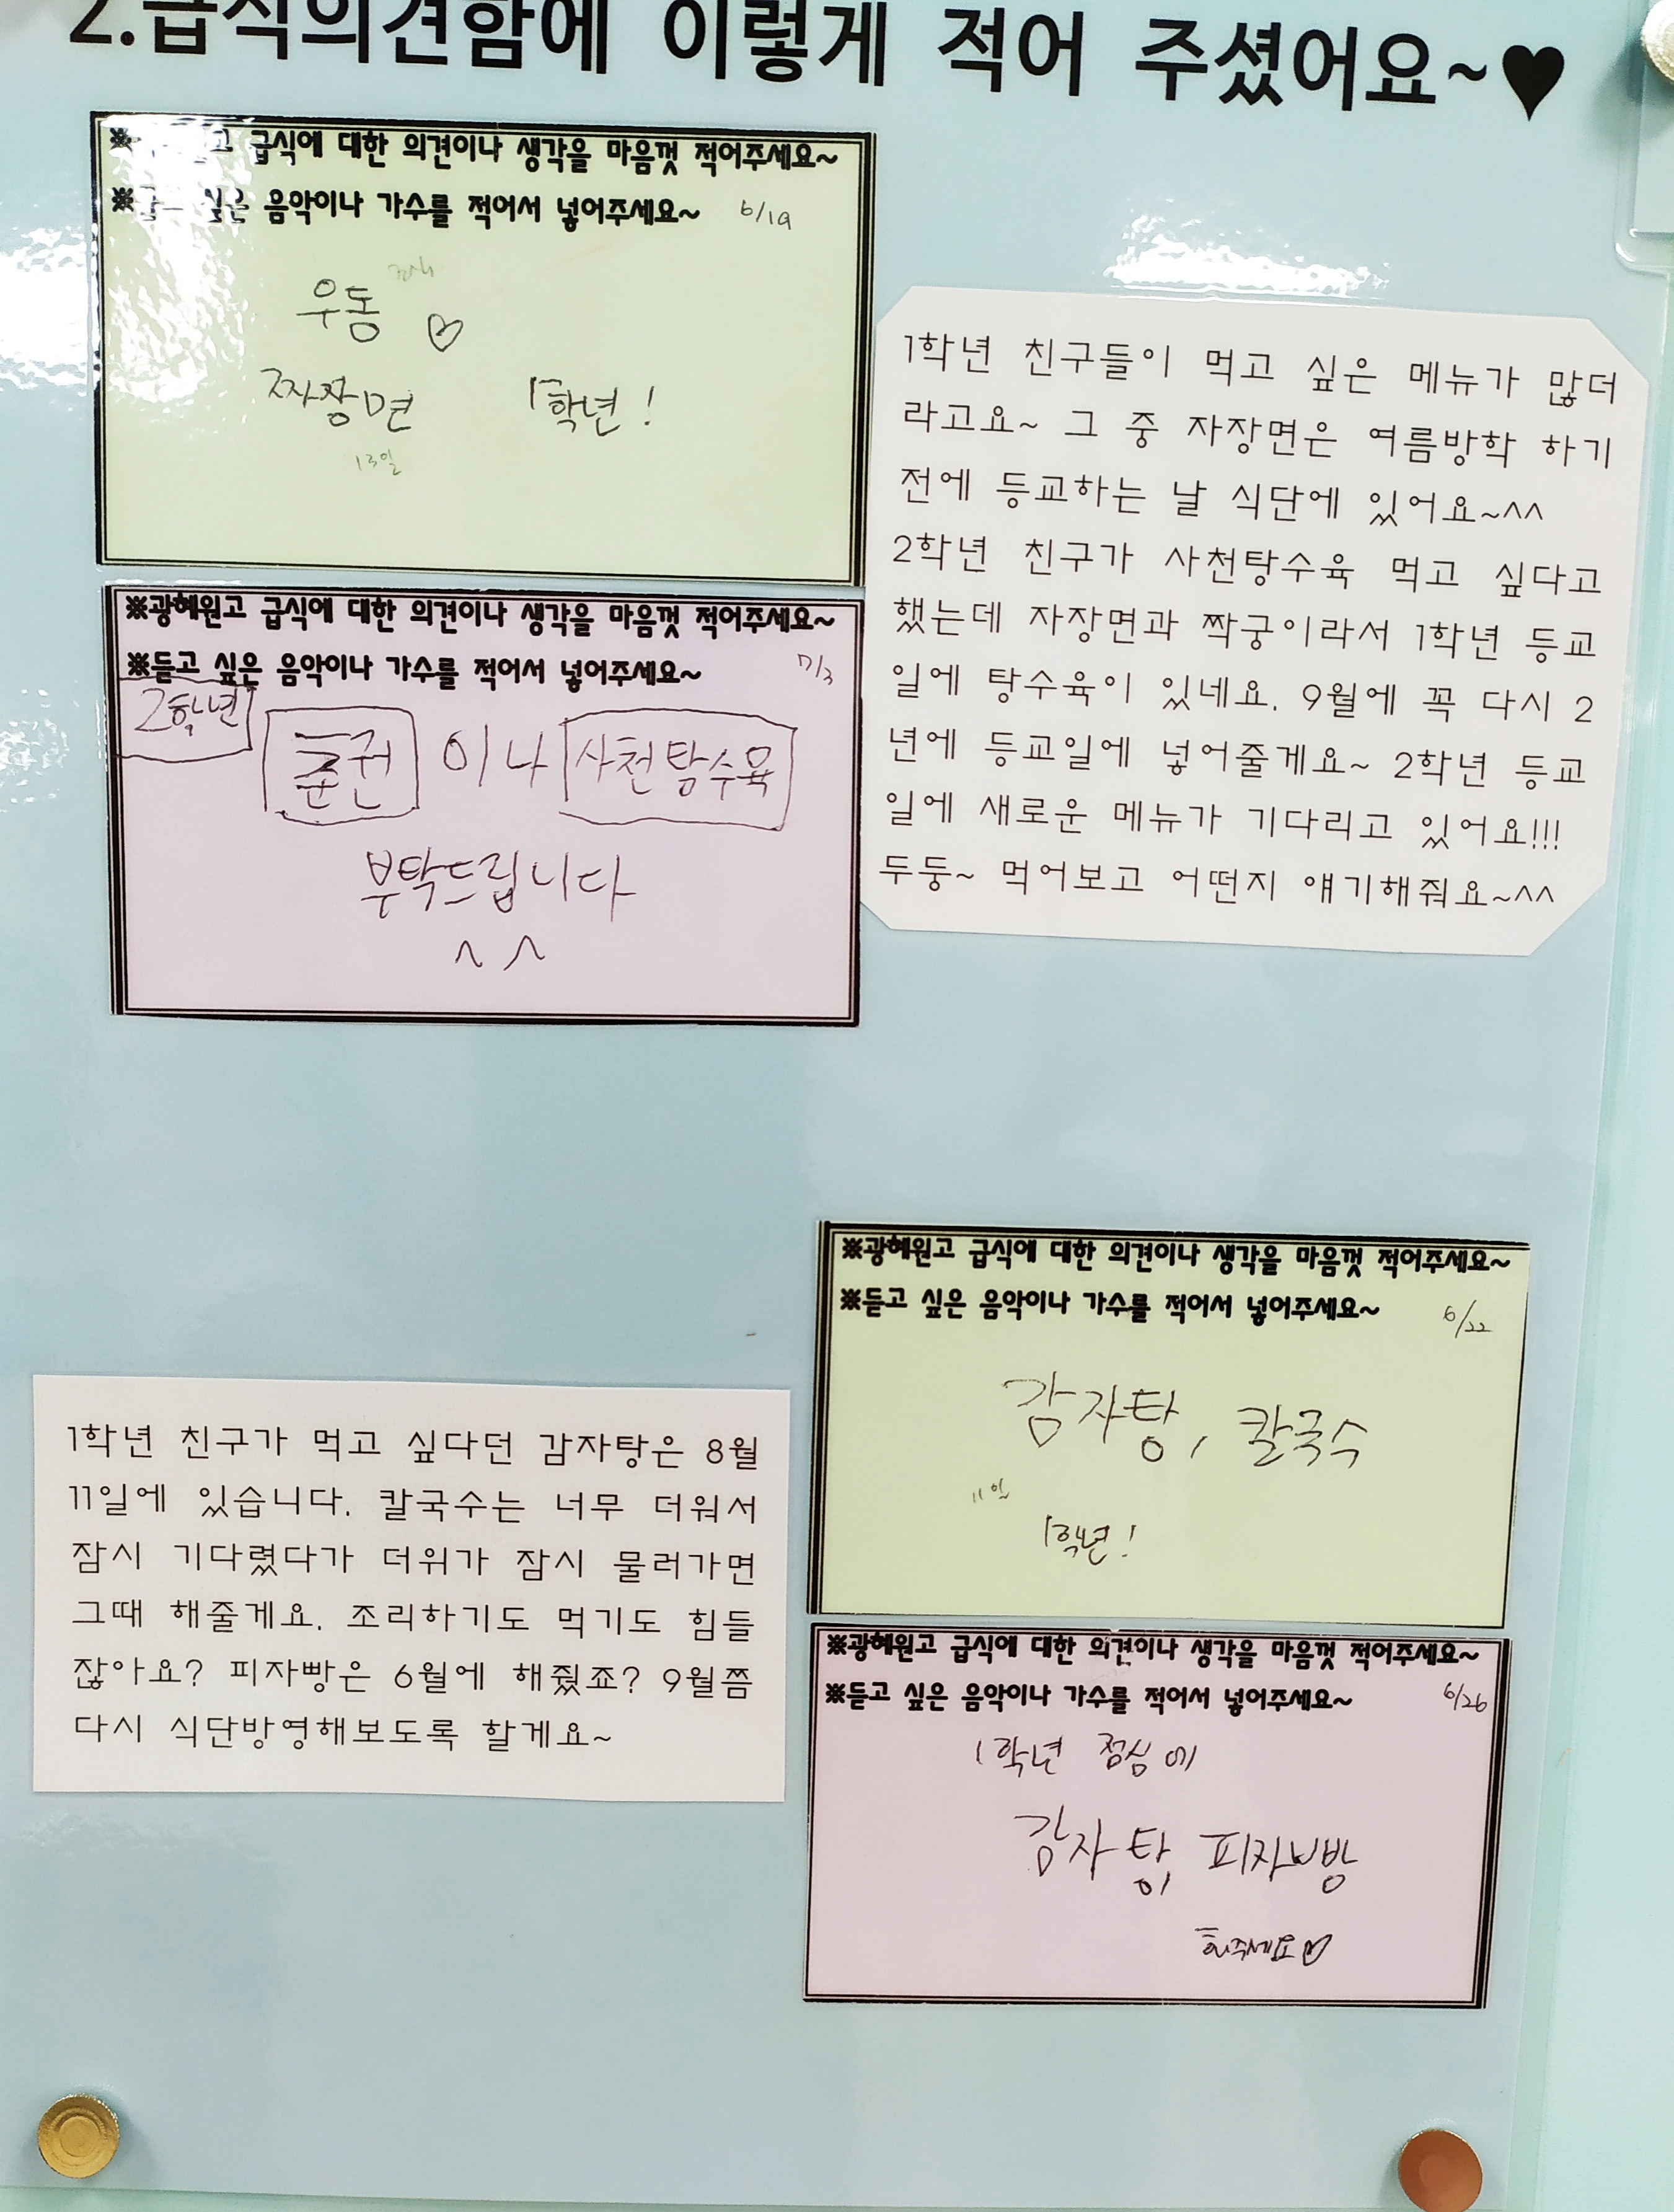 2.급식의견함에 이렇게 적어 주셨어요~♥
※ 고 급식에 대한 의견이나 생각을 마음껏 적어주세요~
※ 싶은 음악이나 가수를 적어서 넣어주세요~ 6/19
우동 ♡
짜장면 1학년!
13일
※광혜원고 급식에 대한 의견이나 생각을 마음껏 적어주세요~
※듣고 싶은 음악이나 가수를 적어서 넣어주세요~ 7/3
2학년
춘권 이나 사천탕수육
부탁드립니다
^ ^
1학년 친구들이 먹고 싶은 메뉴가 많더
라고요~ 그 중 자장면은 여름방학 하기
전에 등교하는 날 식단에 있어요~^^
2학년 친구가 사천탕수육 먹고 싶다고
했는데 자장면과 짝궁이라서 1학년 등교
일에 탕수육이 있네요. 9월에 꼭 다시 2
년에 등교일에 넣어줄게요~ 2학년 등교
일에 새로운 메뉴가 기다리고 있어요!!!
두둥~ 먹어보고 어떤지 얘기해줘요~^^
※광혜원고 급식에 대한 의견이나 생각을 마음껏 적어주세요~
※듣고 싶은 음악이나 가수를 적어서 넣어주세요~ 6/22
감자탕, 칼국수
11일
1학년!
※광혜원고 급식에 대한 의견이나 생각을 마음껏 적어주세요~
※듣고 싶은 음악이나 가수를 적어서 넣어주세요~ 6/26
1학년 점심에
감자탕 피자빵
해주세요♡
1학년 친구가 먹고 싶다던 감자탕은 8월
11일에 있습니다. 칼국수는 너무 더워서
잠시 기다렸다가 더위가 잠시 물러가면
그때 해줄게요. 조리하기도 먹기도 힘들
잖아요? 피자빵은 6월에 해줬죠? 9월쯤
다시 식단방영해보도록 할게요~